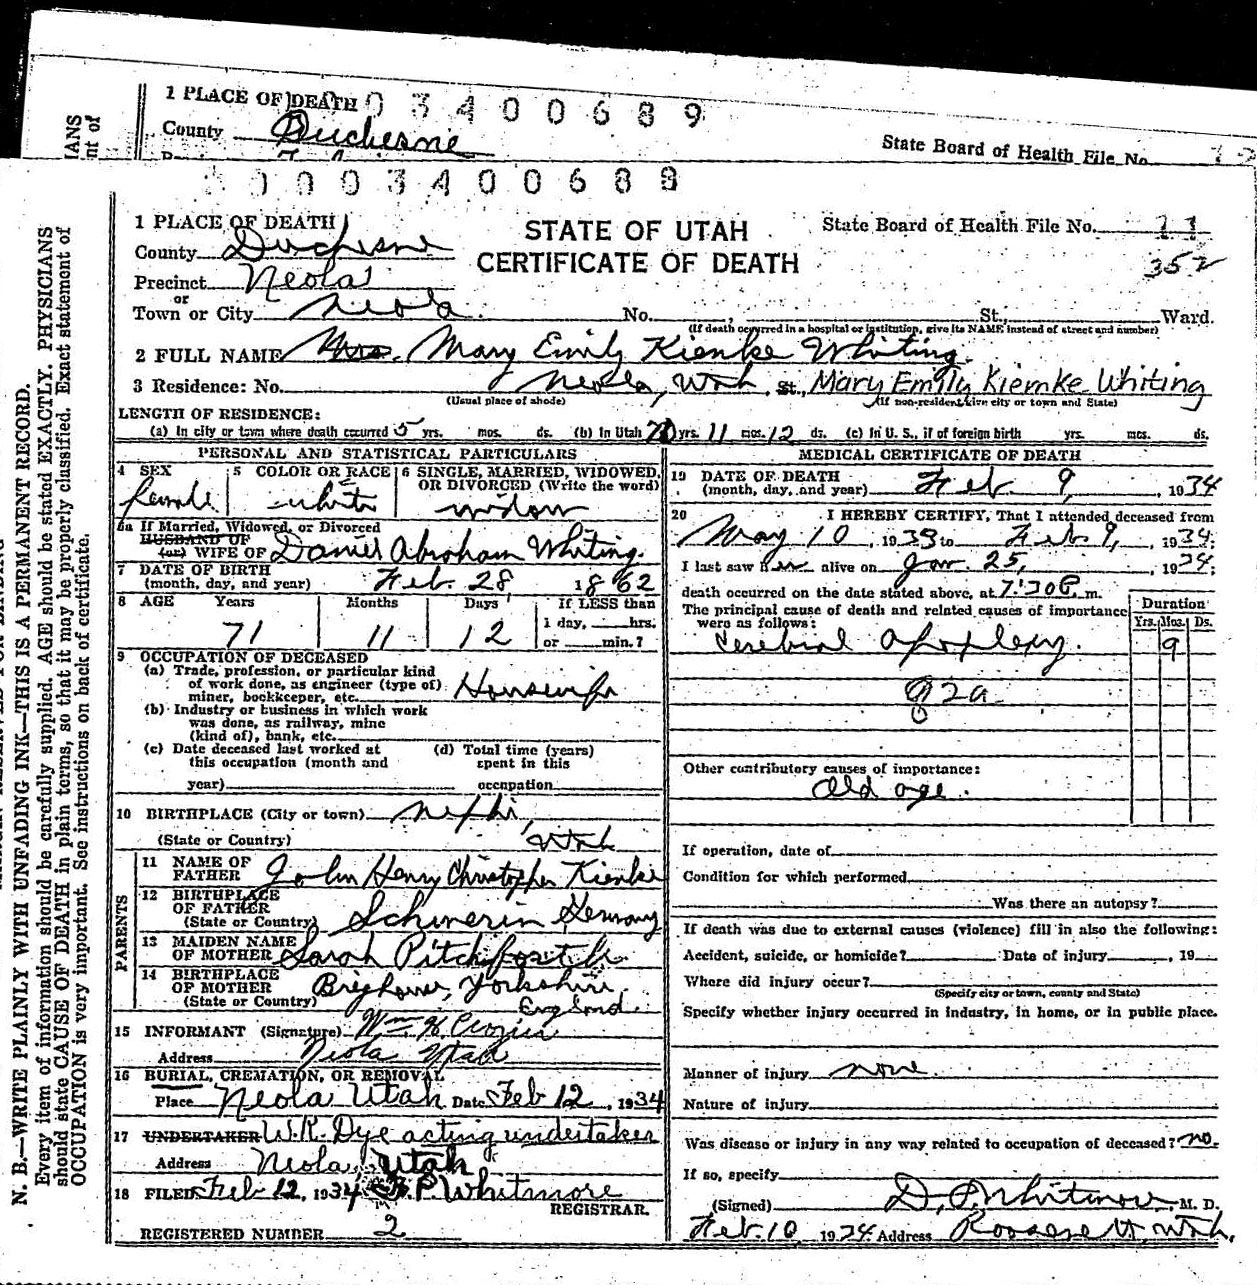 1 PLACE OF DEATH 0 3 4 0 0 6 8 9
County Duchesne
State Board of Health File No.
0 0 0 3 4 0 0 6 8 8
1 PLACE OF DEATH
STATE OF UTAH
State Board of Health File No. 11
County Duchesne
CERTIFICATE OF DEATH
352
Precinct Neola
or
Town or City Neola No. St., Ward.
(If death occurred in a hospital or institution, give its NAME instead of street and number)
2 FULL NAME Mrs. Mary Emily Kienke Whiting.
3 Residence: No. Neola, Utah St., Mary Emily Kiemke Whiting
(Usual place of abode) (If non-resident give city or town and State)
LENGTH OF RESIDENCE:
(a) In city or town where death occurred 5 yrs. mos. ds. (b) In Utah 71 yrs. 11 mos. 12 ds. (c) In U. S., if of foreign birth yrs. mos. ds.
PERSONAL AND STATISTICAL PARTICULARS
4 SEX
female
5 COLOR OR RACE
white
6 SINGLE, MARRIED, WIDOWED,
OR DIVORCED (Write the word)
widow
6a If Married, Widowed, or Divorced
HUSBAND OF
(or) WIFE OF Daniel Abraham Whiting.
7 DATE OF BIRTH
(month, day, and year) Feb. 28, 1862
8 AGE Years Months Days If LESS than
71 11 12 1 day, hrs.
or min.?
9 OCCUPATION OF DECEASED
(a) Trade, profession, or particular kind
of work done, as engineer (type of)
miner, bookkeeper, etc. Housewife
(b) Industry or business in which work
was done, as railway, mine
(kind of), bank, etc.
(c) Date deceased last worked at
this occupation (month and
year)
(d) Total time (years)
spent in this
occupation
10 BIRTHPLACE (City or town) Nephi,
(State or Country) Utah
PARENTS
11 NAME OF
FATHER John Henry Christopher Kienke
12 BIRTHPLACE
OF FATHER
(State or Country) Schwerin, Germany
13 MAIDEN NAME
OF MOTHER Sarah Pitchforth
14 BIRTHPLACE
OF MOTHER
(State or Country) Brighouse, Yorkshire,
England.
15 INFORMANT (Signature) Wm. H. Crozier
Address Neola Utah
16 BURIAL, CREMATION, OR REMOVAL
Place Neola Utah Date Feb 12, 1934
17 UNDERTAKER W.R. Dye acting undertaker
Address Neola, Utah
18 FILED Feb 12, 1934 P. Whitmore
REGISTRAR.
REGISTERED NUMBER 2
MEDICAL CERTIFICATE OF DEATH
19 DATE OF DEATH
(month, day, and year) Feb. 9, 1934
20 I HEREBY CERTIFY, That I attended deceased from
May 10, 1933 to Feb 9, 1934;
I last saw her alive on Jan. 25, 1934;
death occurred on the date stated above, at 7:30 P. m.
The principal cause of death and related causes of importance
were as follows:
Duration
Yrs. Mos. Ds.
Cerebral apoplexy. 9
82a
Other contributory causes of importance:
Old age.
If operation, date of
Condition for which performed
Was there an autopsy?
If death was due to external causes (violence) fill in also the following:
Accident, suicide, or homicide? Date of injury, 19
Where did injury occur?
(Specify city or town, county and State)
Specify whether injury occurred in industry, in home, or in public place.
Manner of injury none
Nature of injury
Was disease or injury in any way related to occupation of deceased? no.
If so, specify
(Signed) D. P. Whitmore, M. D.
Feb. 10, 1934 Address Roosevelt, Utah.
N. B.—WRITE PLAINLY WITH UNFADING INK—THIS IS A PERMANENT RECORD.
Every item of information should be carefully supplied. AGE should be stated EXACTLY. PHYSICIANS
should state CAUSE OF DEATH in plain terms, so that it may be properly classified. Exact statement of
OCCUPATION is very important. See instructions on back of certificate.